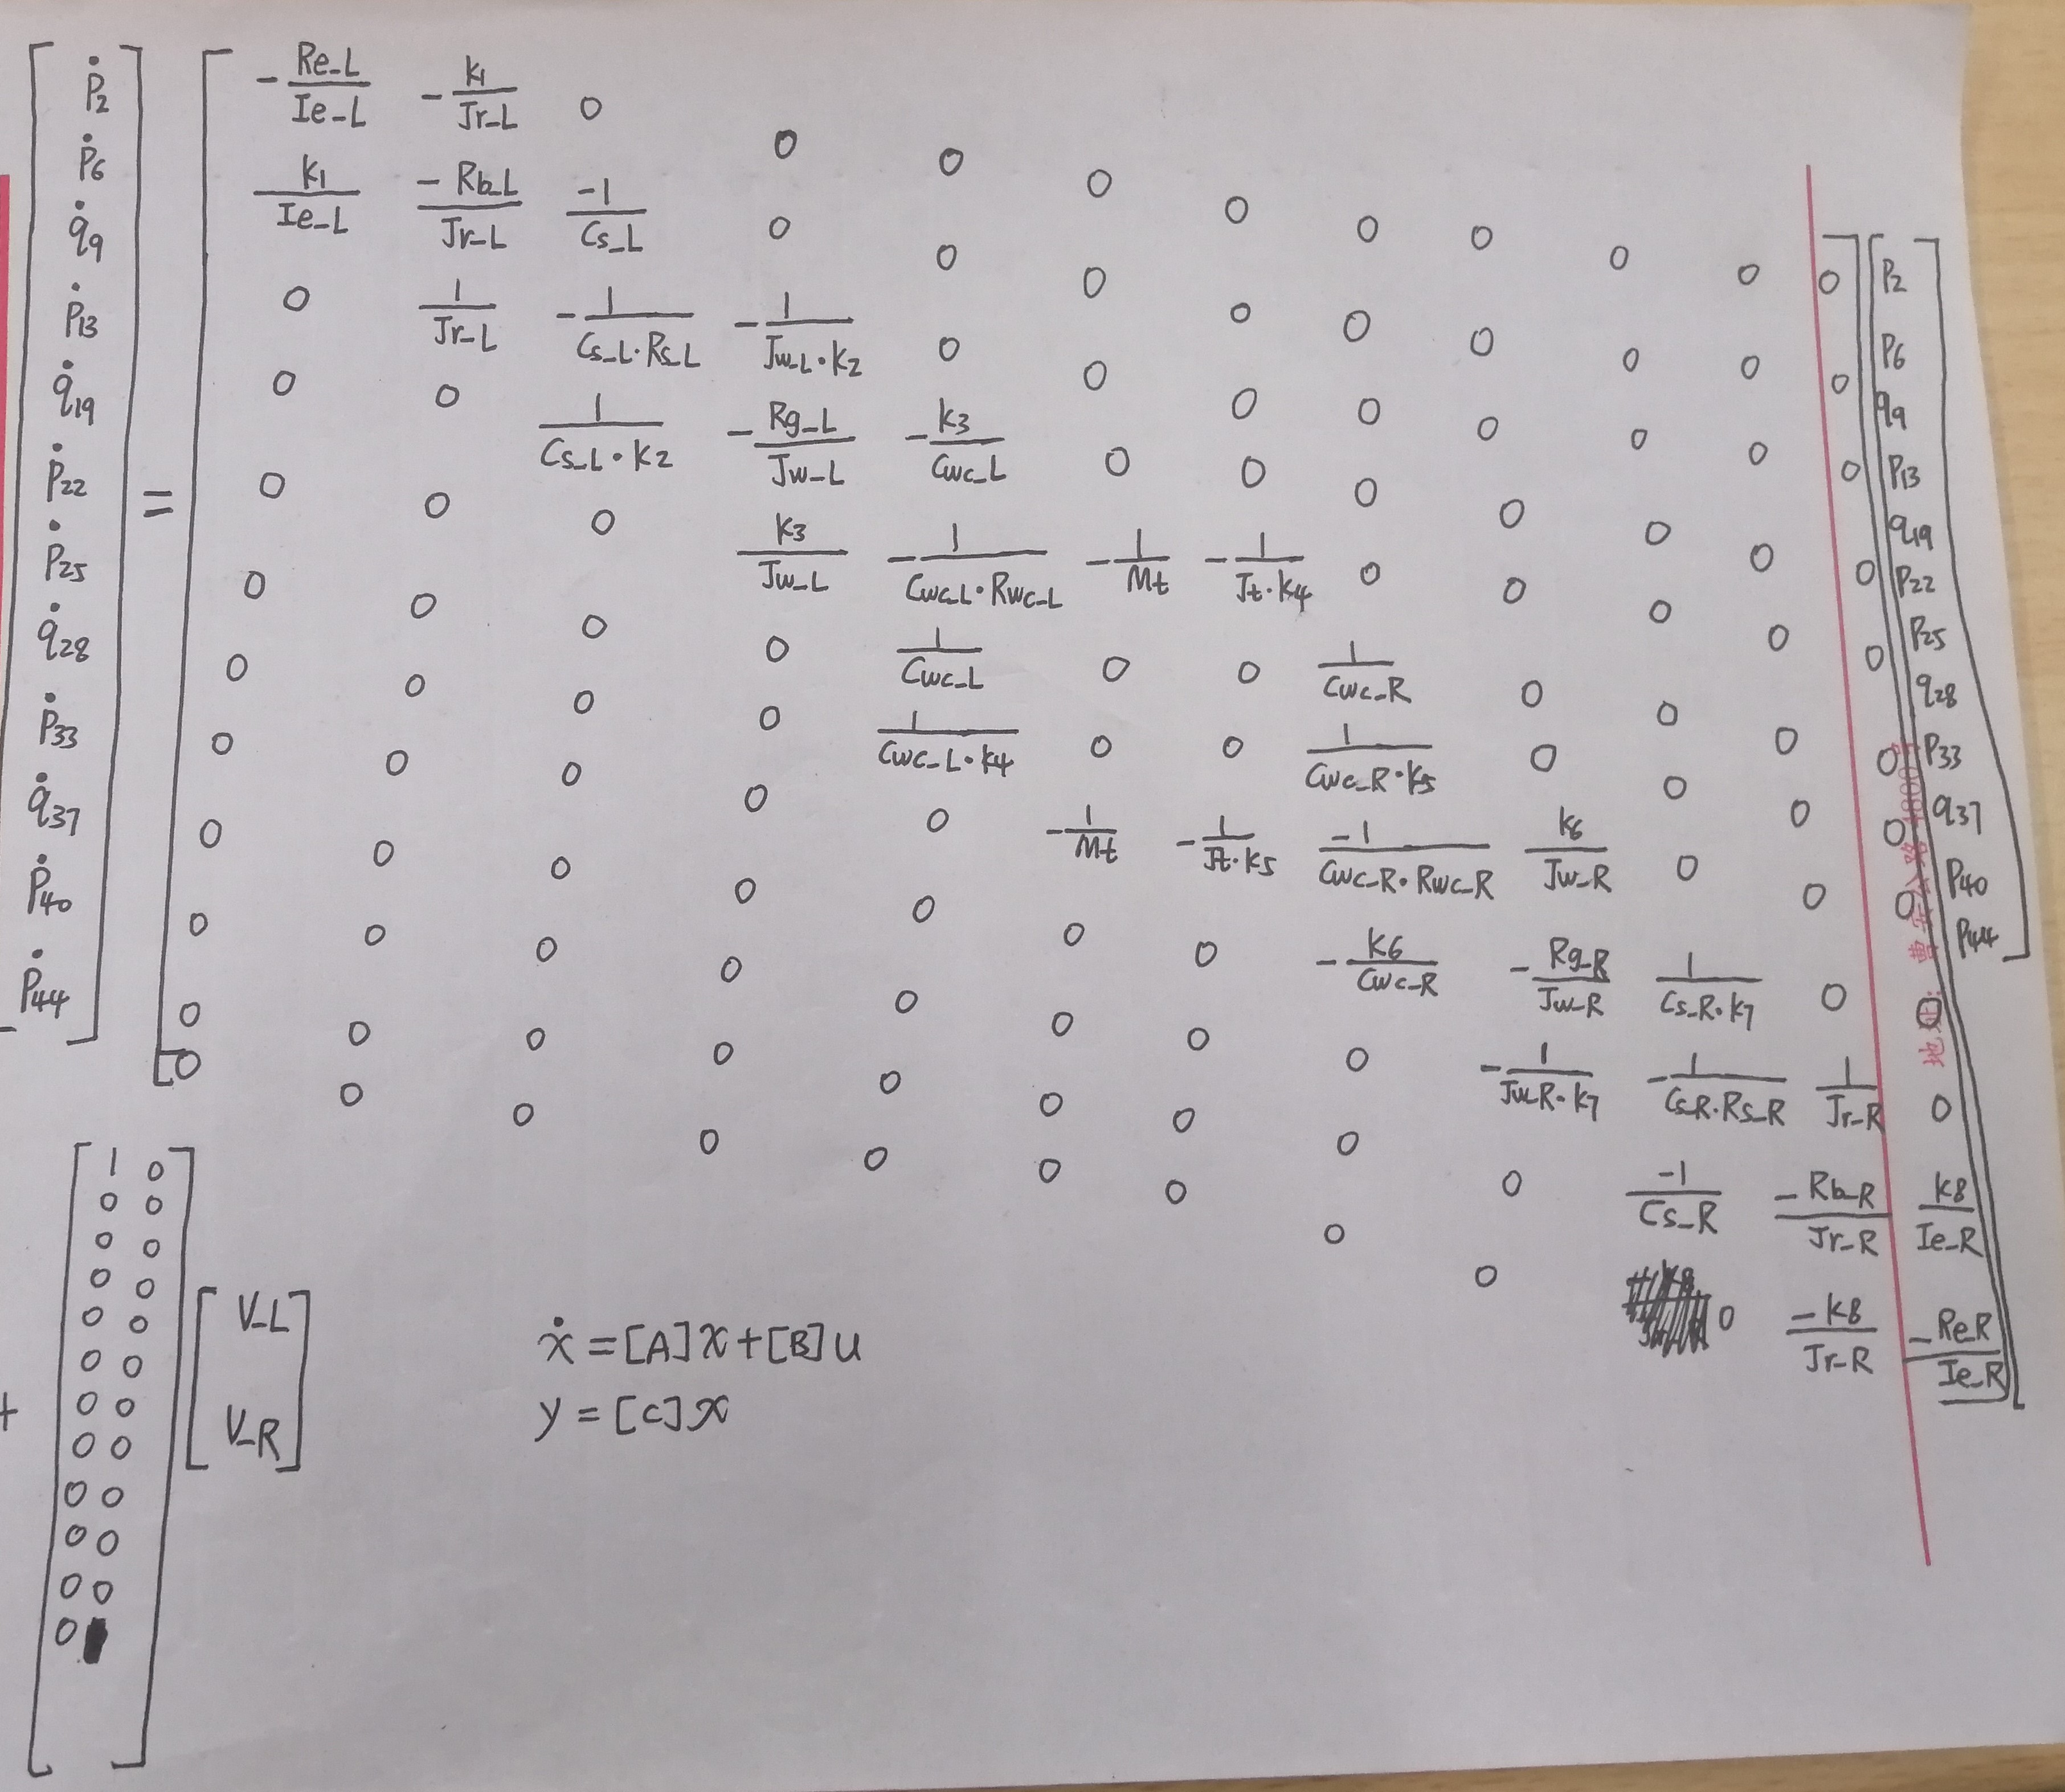 [ṗ2 ṗ6 q̇9 ṗ13 q̇19 ṗ22 ṗ25 q̇28 ṗ33 q̇37 ṗ40 ṗ44] =
-Re_L/Ie_L -k1/Jr_L 0 0 0 0 0 0 0 0 0 0
k1/Ie_L -Rb_L/Jr_L -1/Cs_L 0 0 0 0 0 0 0 0 0
0 1/Jr_L -1/(Cs_L·Rs_L) -1/(Jw_L·k2) 0 0 0 0 0 0 0 0
0 0 1/(Cs_L·k2) -Rg_L/Jw_L -k3/Cwc_L 0 0 0 0 0 0 0
0 0 0 k3/Jw_L -1/(Cwc_L·Rwc_L) -1/Mt -1/(Jt·k4) 0 0 0 0 0
0 0 0 0 1/Cwc_L 0 0 1/Cwc_R 0 0 0 0
0 0 0 0 1/(Cwc_L·k4) 0 0 1/(Cwc_R·k5) 0 0 0 0
0 0 0 0 0 -1/Mt -1/(Jt·k5) -1/(Cwc_R·Rwc_R) k6/Jw_R 0 0 0
0 0 0 0 0 0 0 -k6/Cwc_R -Rg_R/Jw_R 1/(Cs_R·k7) 0 0
0 0 0 0 0 0 0 0 -1/(Jw_R·k7) -1/(Cs_R·Rs_R) 1/Jr_R 0
0 0 0 0 0 0 0 0 0 -1/Cs_R -Rb_R/Jr_R k8/Ie_R
0 0 0 0 0 0 0 0 0 0 -k8/Jr_R -Re_R/Ie_R
[p2 p6 q9 p13 q19 p22 p25 q28 p33 q37 p40 p44]
+
1 0
0 0
0 0
0 0
0 0
0 0
0 0
0 0
0 0
0 0
0 0
0
[V_L V_R]
ẋ = [A]x + [B]u
y = [C]x
地址: